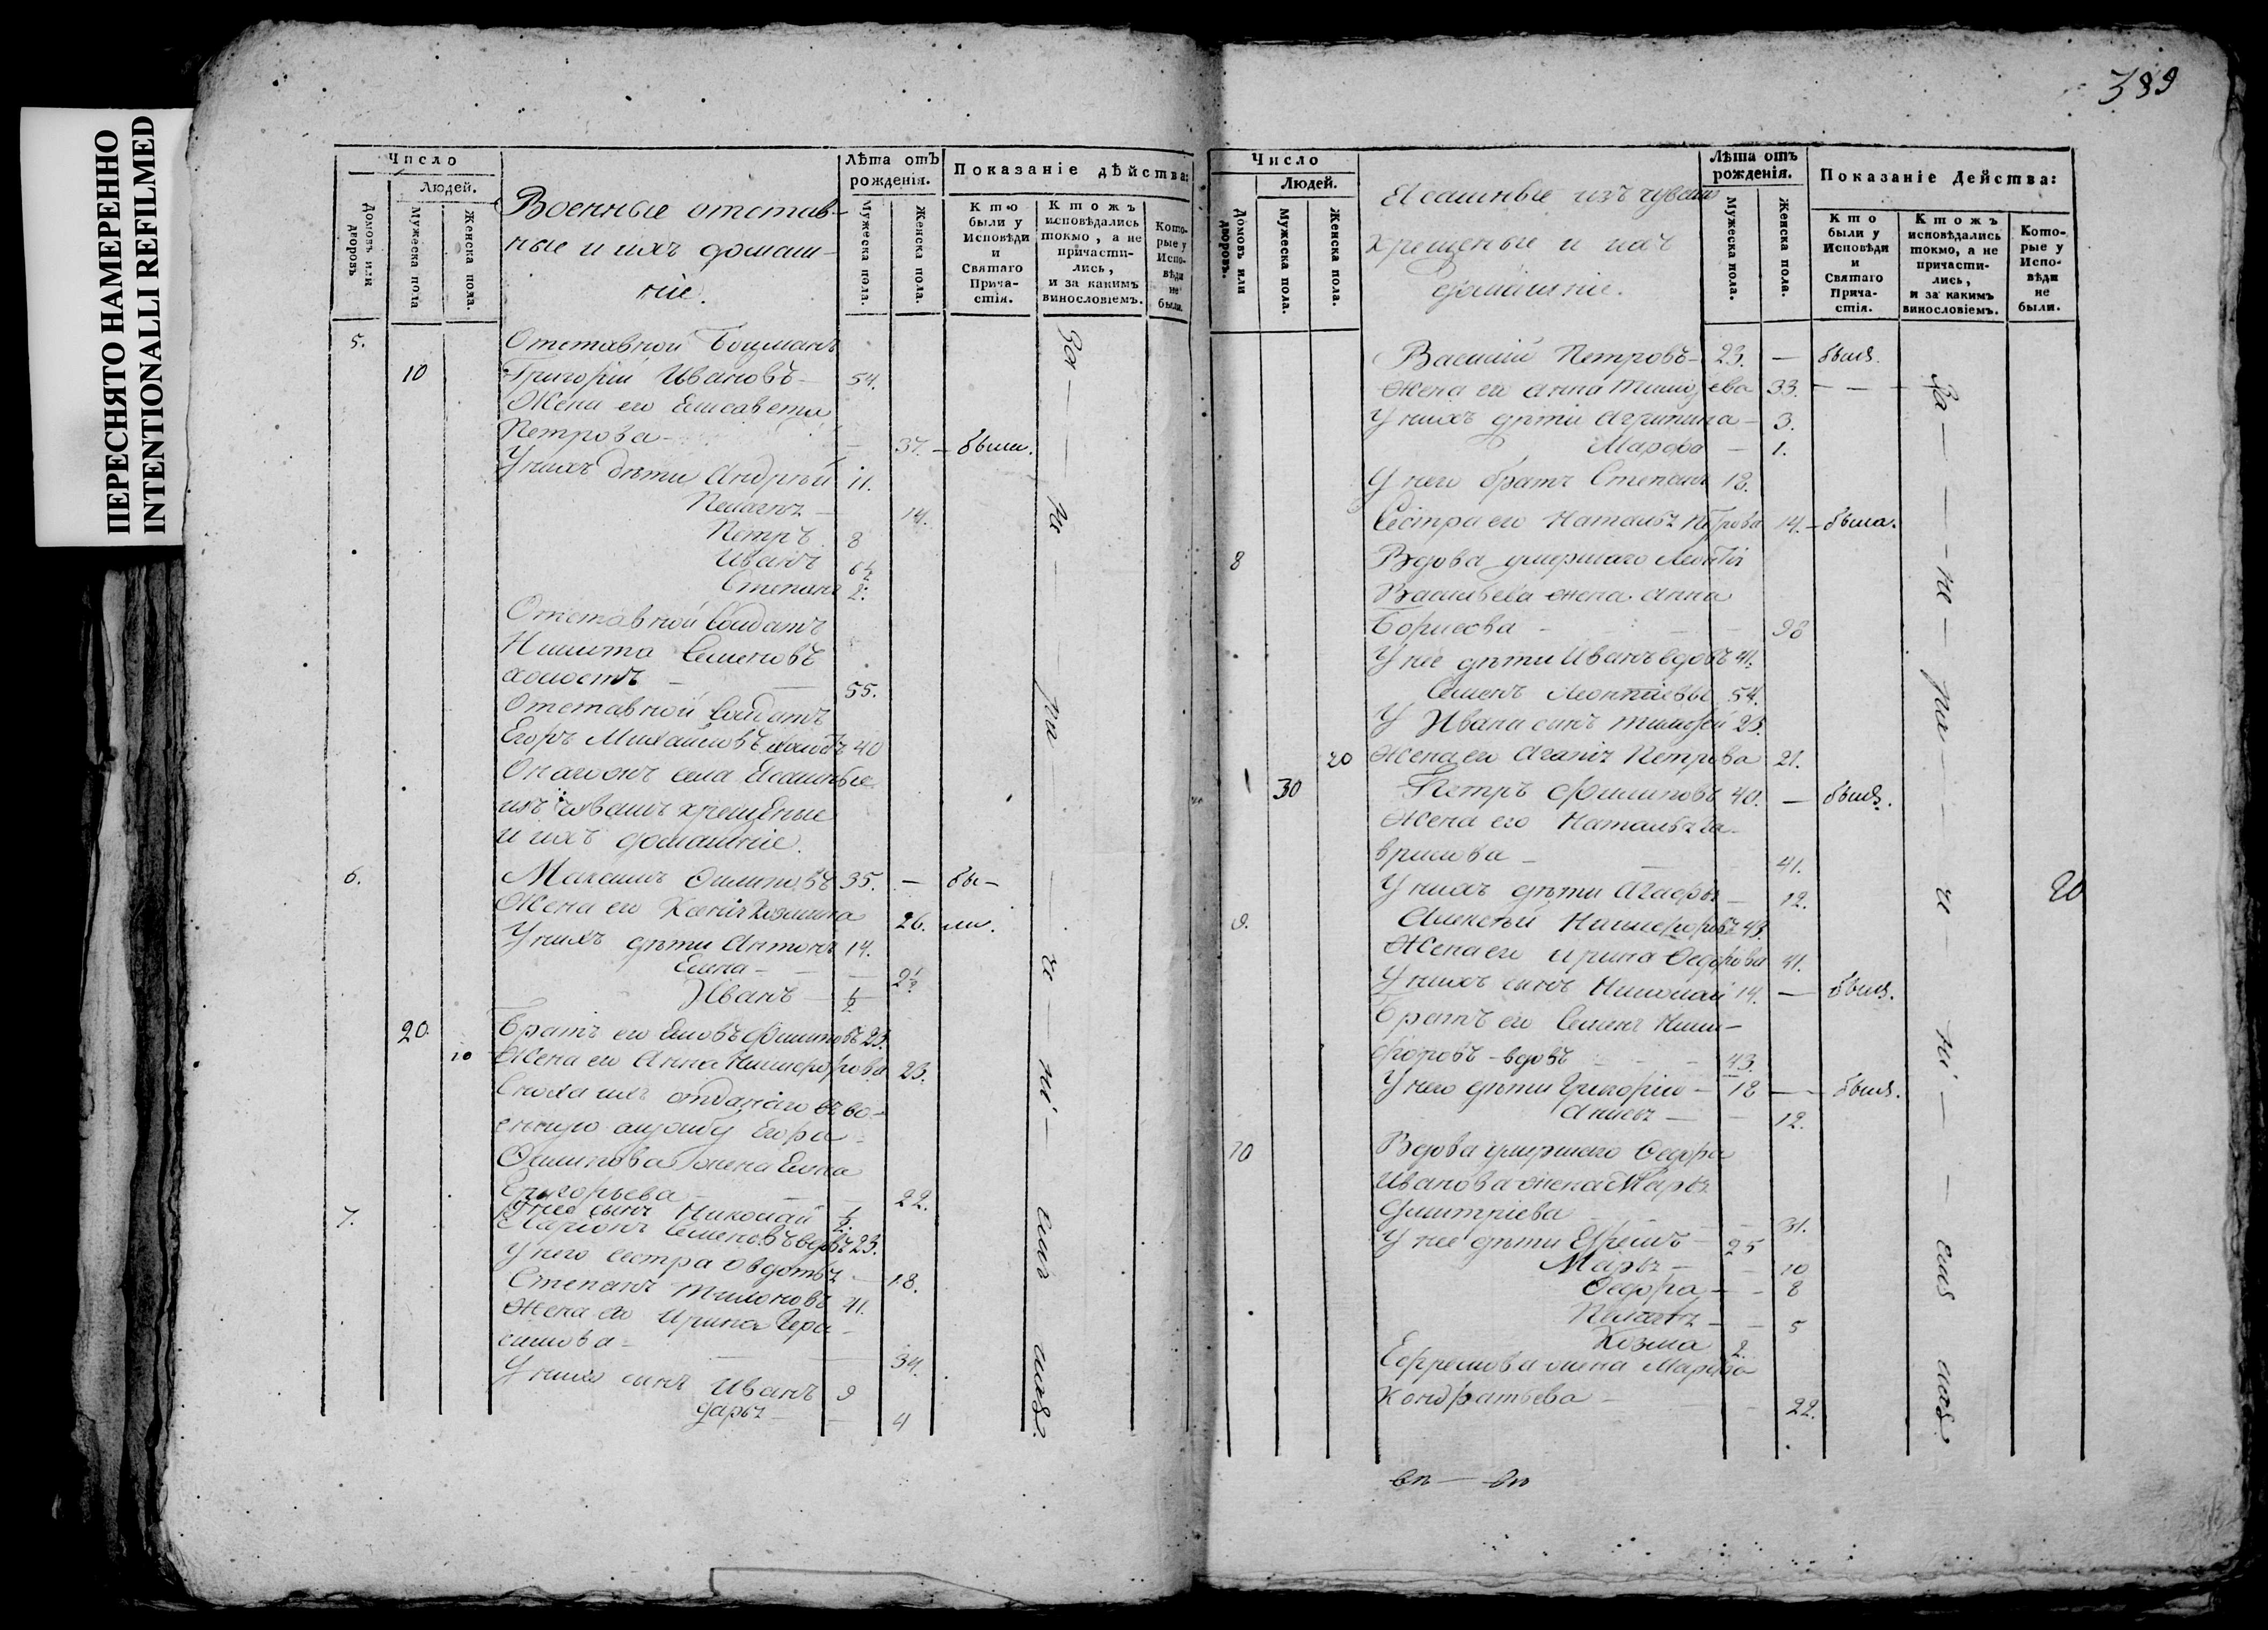 ПЕРЕСНЯТО НАМЕРЕННО
INTENTIONALLI REFILMED
389
Число
Людей.
Домовъ или дворовъ
Мужеска пола
Женска пола.
Военные отстав-
ные и ихъ домаш-
ніе.
Лѣта отъ рожденія.
Мужеска пола.
Женска пола.
Показаніе дѣйства:
Кто были у Исповѣди и Святаго Прича-стія.
Ктожъ исповѣдались токмо, а не причасти-лись, и за какимъ винословіемъ.
Кото-рые у Испо-вѣди не были.
5. Отставной Боцманъ
10 Григорій Ивановъ 54.
Жена его Елисавета
Петрова 37. были.
У нихъ дѣти Андрей 11.
14.
Петръ 8
Иванъ
Степанъ 2.
Отставной Солдатъ
Никита Семеновъ
холостъ 55.
Отставной Солдатъ
Егоръ Михайловъ 40
села Ясашные
изъ чувашъ крещеные
и ихъ домашніе.
6. 35. — бы-
Жена его 26. ли.
У нихъ дѣти Антонъ 14.
Елена
Иванъ 1/2
20. Братъ его 23.
10 Жена его Анна Никифорова 23.
Сноха ихъ отданаго въ во-
енную службу Егора
Филипова жена Елена
Григорьева 22.
У нее сынъ Николай 1/2.
7. Ларіонъ Семеновъ вдовъ 23.
У него сестра Овдотья 18.
Степанъ 41.
Жена его Ирина Гера-
симова 34.
У нихъ сынъ Иванъ 9
Дарья 4
Число
Людей.
Домовъ или дворовъ.
Мужеска пола.
Женска пола.
Ясашные изъ чувашъ
крещеные и ихъ
домашніе.
Лѣта отъ рожденія.
Мужеска пола.
Женска пола.
Показаніе Действа:
Кто были у Исповѣди и Святаго Прича-стія.
Ктожъ исповѣдались токмо, а не причасти-лись, и за какимъ винословіемъ.
Кото-рые у Испо-вѣди не были.
Василій Петровъ 23. — былъ.
Жена ево Анна Тимофеева 33.
У нихъ дѣти Агрипина 3.
Марфа 1.
У него братъ Степанъ 18.
Сестра его Наталья Петрова 14. была.
8 Вдова умершаго Леонтія
Васильева жена Анна
Борисова 98
У нее дѣти Иванъ вдовъ 41.
Семенъ Леонтіевы 54.
У Ивана сынъ Тимофей 23.
20 Жена его Агапія Петрова 21.
30 Петръ Филиповъ 40. — былъ.
Жена его Наталья Га-
врилова 41.
У нихъ дѣти Агафья 12.
20
9. Алексѣй Никифоровъ 43.
Жена его Ирина Федорова 41.
У нихъ сынъ Николай 14. — былъ.
Братъ его Семенъ Ники-
форовъ вдовъ 43.
У него дѣти Григорій 18 — былъ.
12.
10 Вдова умершаго Федора
Иванова жена Марья
Дмитріева 31.
У нее дѣти Ефремъ 25
Марья 10
Федора 8
Пелагея 5
Козма 2.
Ефремова жена Марфа
Кондратьева 22.